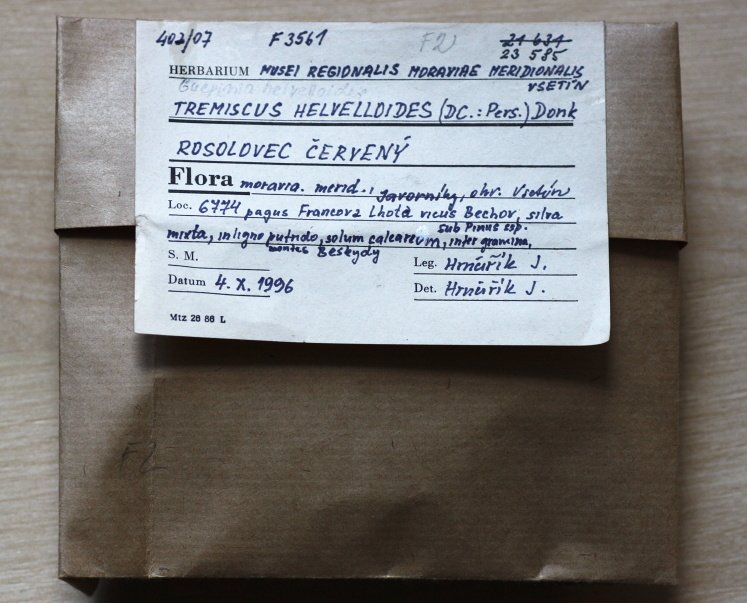 402/07 F 3561 F2 21 634
23 585
HERBARIUM MUSEI REGIONALIS MORAVIAE MERIDIONALIS
VSETÍN
Guepinia helvelloides
TREMISCUS HELVELLOIDES (DC.: Pers.) Donk
ROSOLOVEC ČERVENÝ
Flora moravia. merid.; Javorníky, okr. Vsetín
Loc. 6774 pagus Francova Lhota vicus Bechov, silva
sub Pinus ssp.
mixta, in ligno putrido, solum calcareum, inter gramina,
montes Beskydy
S. M.
Leg. Hrnčiřík J.
Datum 4. X. 1996
Det. Hrnčiřík J.
Mtz 26 86 L
F2